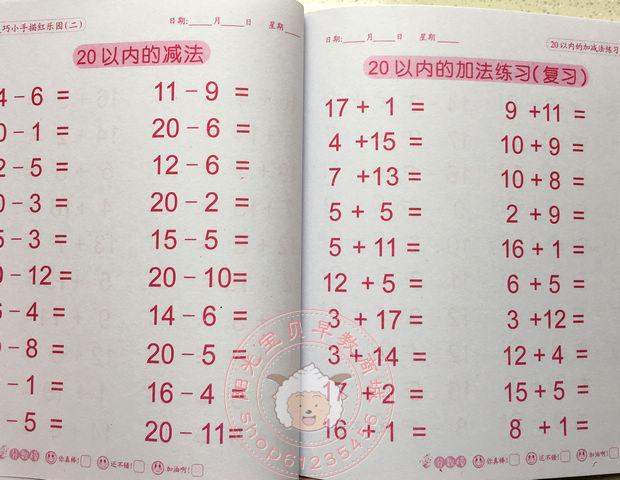 巧小手描红乐园(二)
日期:____月____日 星期____
20以内的减法
4－6＝ 11－9＝
0－1＝ 20－6＝
2－5＝ 12－6＝
0－3＝ 20－2＝
5－3＝ 15－5＝
0－12＝ 20－10＝
－4＝ 14－6＝
－8＝ 20－5＝
－1＝ 16－4＝
－5＝ 20－11＝
你真棒! 还不错! 加油啊!
日期:____月____日 星期____
20以内的加减法练习
20以内的加法练习(复习)
17＋1＝ 9＋11＝
4＋15＝ 10＋9＝
7＋13＝ 10＋8＝
5＋5＝ 2＋9＝
5＋11＝ 16＋1＝
12＋5＝ 6＋5＝
3＋17＝ 3＋12＝
3＋14＝ 12＋4＝
17＋2＝ 15＋5＝
16＋1＝ 8＋1＝
你真棒! 还不错! 加油啊!
阳光宝贝早教商城
shop61235456